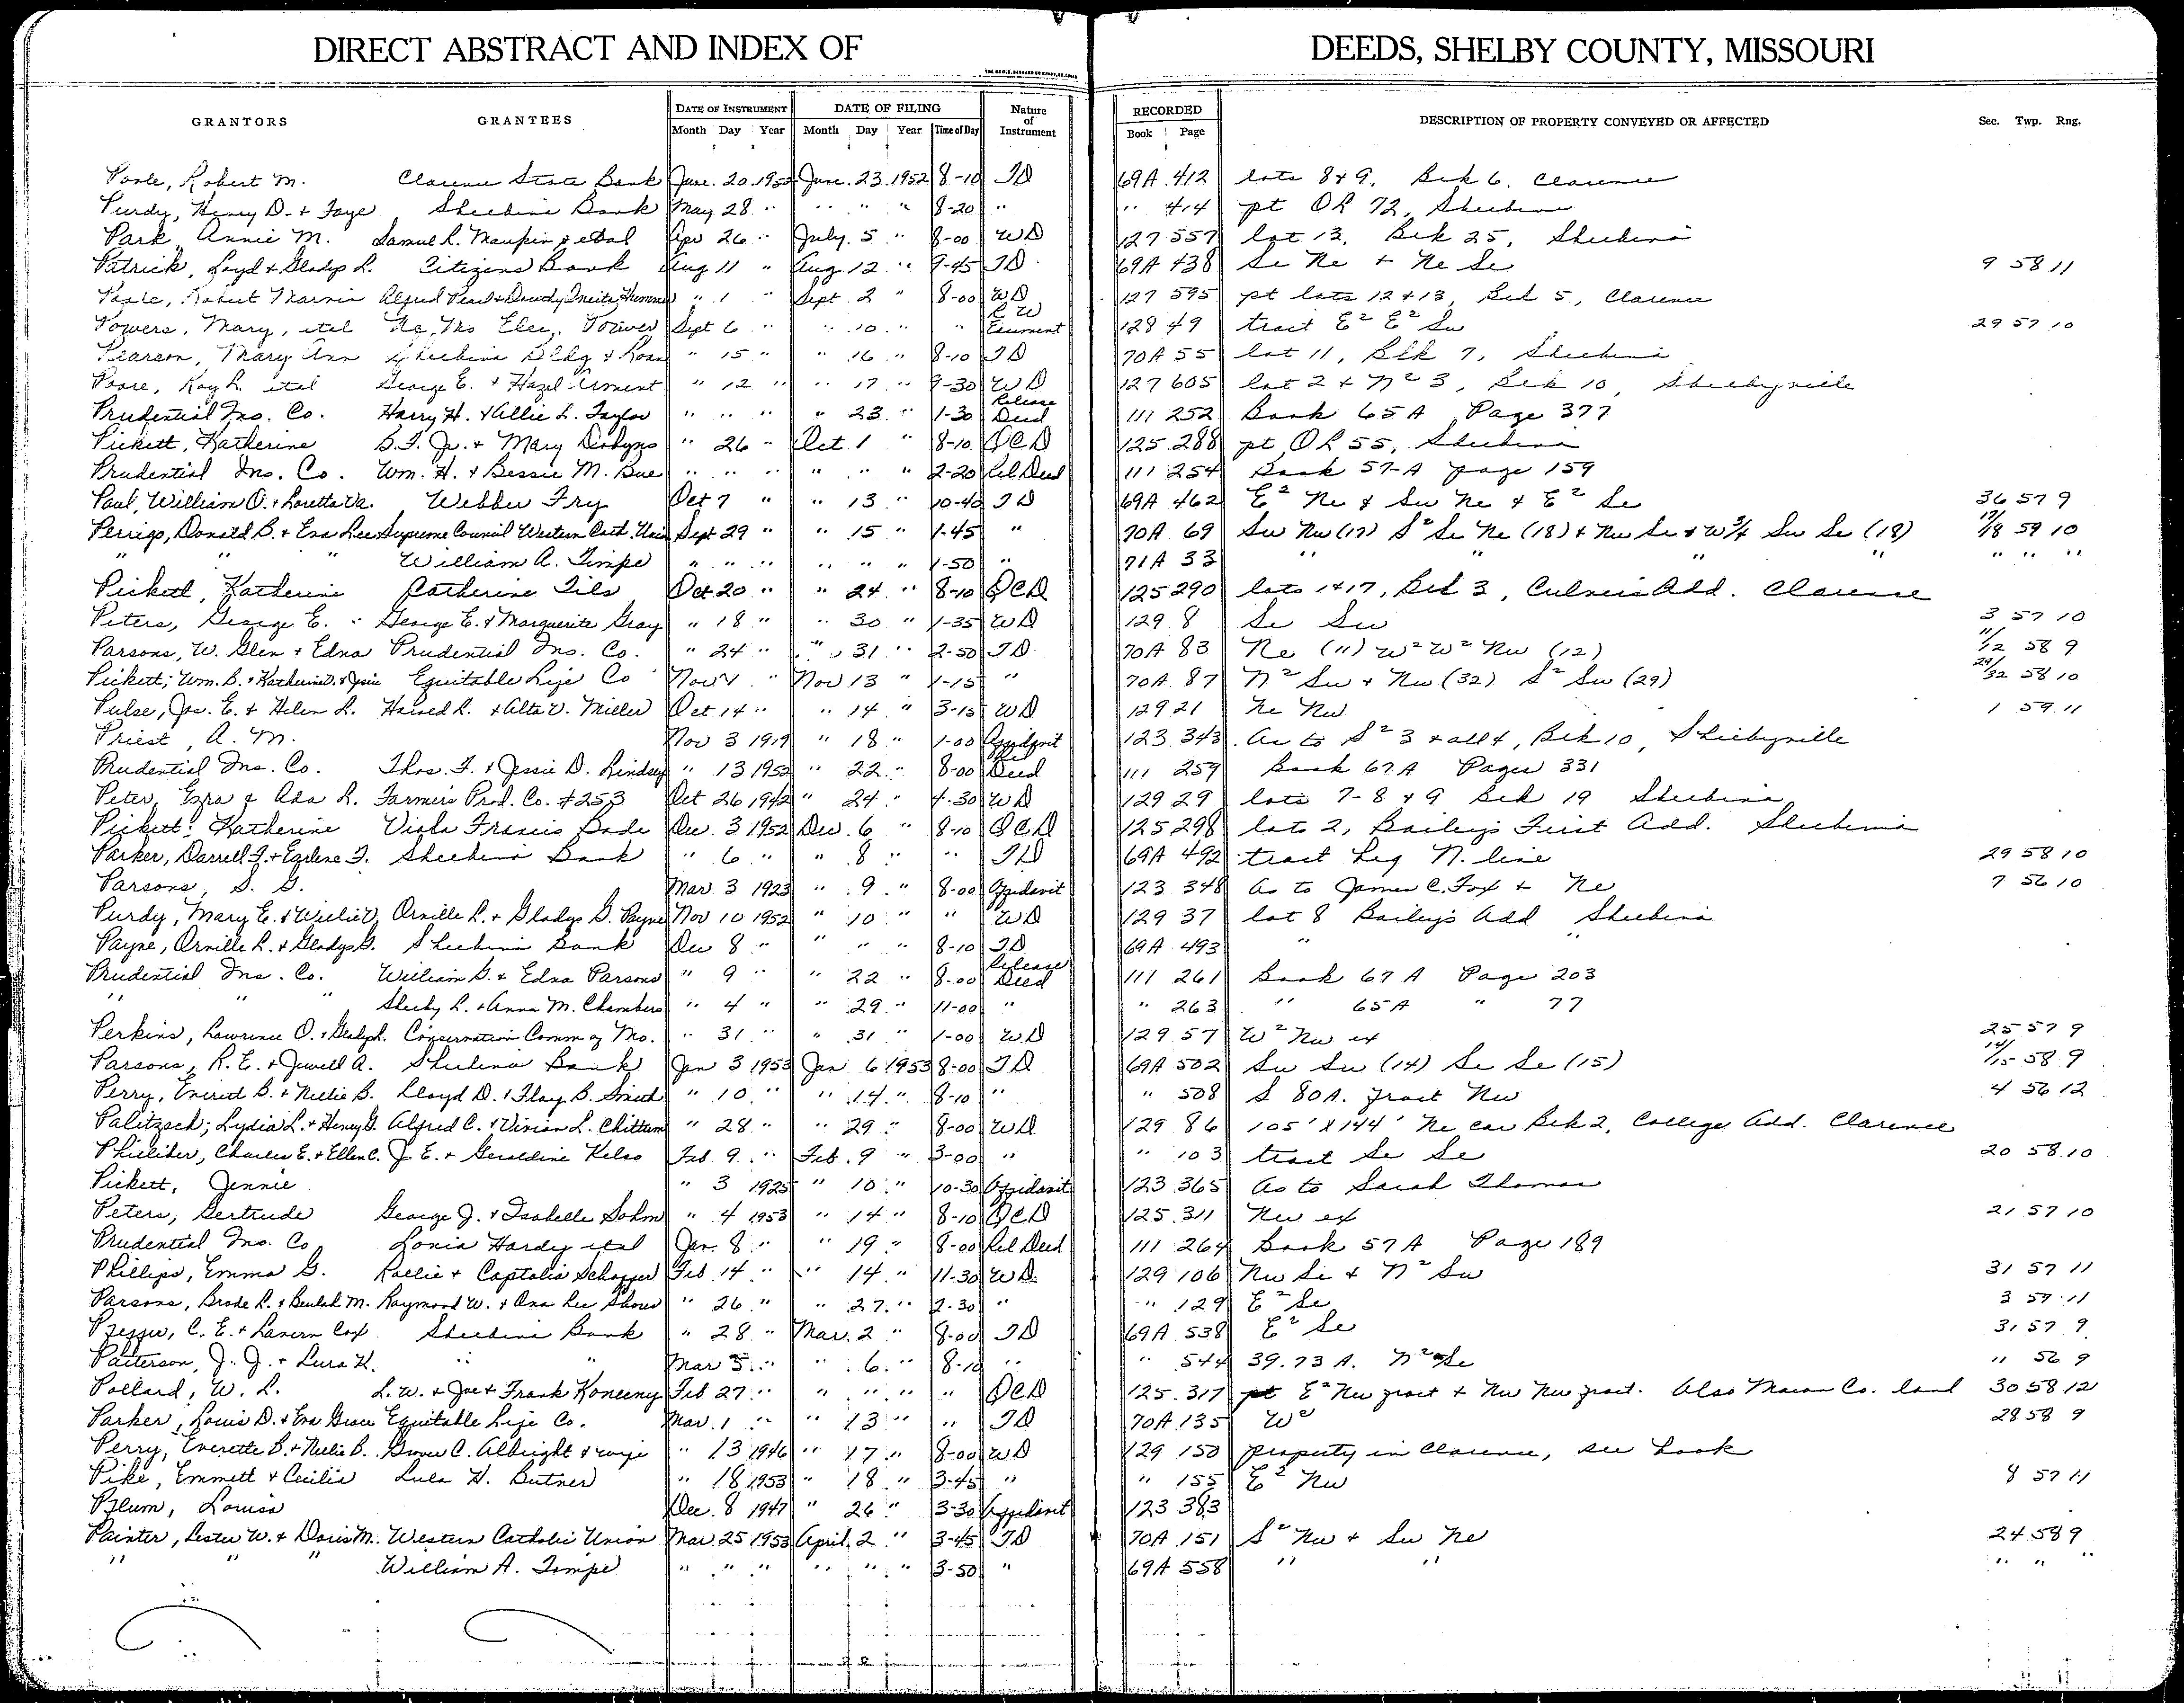 DIRECT ABSTRACT AND INDEX OF DEEDS, SHELBY COUNTY, MISSOURI
GRANTORS GRANTEES DATE OF INSTRUMENT DATE OF FILING Nature of Instrument RECORDED DESCRIPTION OF PROPERTY CONVEYED OR AFFECTED Sec. Twp. Rng.
Month Day Year Month Day Year Time of Day Book Page
Poole, Robert M. Clarence State Bank June. 20 1952 June. 23 1952 8-10 TD 69A 412 lots 8 & 9, Blk 6, Clarence
Purdy, Henry D. & Faye Shelbina Bank May 28 " " " " 8-20 " " 414 pt OL 72, Shelbina
Park, Annie M. Samuel R. Maupin, etal Apr 26 " July. 5 " 8-00 WD 127 557 lot 13, Blk 25, Shelbina
Patrick, Loyd & Gladys L. Citizens Bank Aug 11 " Aug 12 " 9-45 TD 69A 438 Se Ne & Ne Se 9 58 11
Poole, Robert Marvin " 1 " Sept 2 " 8-00 WD 127 595 pt lots 12 & 13, Blk 5, Clarence
Powers, Mary, etal Ne. Mo Elec. Sept 6 " " 10 " " 128 49 tract E² E² Sw 29 57 10
Pearson, Mary Ann Shelbina Bldg & Loan " 15 " " 16 " 8-10 TD 70A 55 lot 11, Blk 7, Shelbina
Poore, Roy L. etal George E. & Hazel Arment " 12 " " 17 " 9-30 WD 127 605 lot 2 & N² 3, Blk 10, Shelbyville
Prudential Ins. Co. Harry H. & Allie L. Taylor " " " " 23 " 1-30 Release Deed 111 252 Book 65 A Page 377
Pickett, Katherine B.F. Jr. & Mary Dobyns " 26 " Oct. 1 " 8-10 QCD 125 288 pt OL 55, Shelbina
Prudential Ins. Co. Wm. H. & Bessie M. Bue " " " " " " 2-20 Rel Deed 111 254 Book 57-A page 159
Paul, William O. & Loretta Va. Webber Fry Oct 7 " " 13 " 10-40 TD 69A 462 E² Ne & Sw Ne & E² Se 36 57 9
Perrigo, Donald B. & Eva Lee Supreme Council Western Cath. Union Sept 29 " " 15 " 1-45 " 70A 69 Sw Nw (17) S² Se Ne (18) & Nw Se & W ¾ Sw Se (18) 17/18 59 10
" " " William A. Timpe " " " " " " 1-50 " 71A 33 " " " " " " "
Pickett, Katherine Catherine Oct 20 " " 24 " 8-10 QCD 125 290 lots 1 & 17, Blk 3, Culvers Add. Clarence
Peters, George E. George E. & Marguerite Gray " 18 " " 30 " 1-35 WD 129 8 Se Sw 3 57 10
Parsons, W. Glen & Edna Prudential Ins. Co. " 24 " " 31 " 2-50 TD 70A 83 Ne (11) W² W² Nw (12) 11/12 58 9
Pickett, Wm. B. & Katherine & Josie Equitable Life Co Nov 1 " Nov 13 " 1-15 " 70A 87 N² Sw & Nw (32) S² Sw (29) 29/32 58 10
Pulse, Jas. E. & Helen L. Harved L. & Alta V. Miller Oct. 14 " " 14 " 3-15 WD 129 21 Ne Nw 1 59 11
Priest, A. M. Nov 3 1919 " 18 " 1-00 Affidavit 123 343 As to S² 3 & all 4, Blk 10, Shelbyville
Prudential Ins. Co. Thos. F. & Jessie D. Lindsey " 13 1952 " 22 " 8-00 Rel Deed 111 259 Book 67 A Page 331
Peter, Ezra & Ada L. Farmers Prod. Co. #253 Oct 26 1942 " 24 " 4-30 WD 129 29 lots 7-8 & 9 Blk 19 Shelbina
Pickett, Katherine Viola Francis Bode Dec. 3 1952 Dec. 6 " 8-10 QCD 125 298 lot 2, Bailey's First Add. Shelbina
Parker, Darrell F. & Earlene F. Shelbina Bank " 6 " " 8 " " TD 69A 492 tract beg N. line 29 58 10
Parsons, S. G. Mar 3 1923 " 9 " 8-00 Affidavit 123 348 As to James C. Fox & Ne 7 56 10
Purdy, Mary E. & Willie V. Orville L. & Gladys G. Payne Nov 10 1952 " 10 " " WD 129 37 lot 8 Bailey's Add Shelbina
Payne, Orville L. & Gladys G. Shelbina Bank Dec 8 " " " " 8-10 TD 69A 493 " "
Prudential Ins. Co. William G. & Edna Parsons " 9 " " 22 " 8-00 Release Deed 111 261 Book 67 A Page 203
" " " Shelby L. & Anna M. Chambers " 4 " " 29 " 11-00 " " 263 " 65A " 77
Perkins, Lawrence O. & Conservation Comm of Mo. " 31 " " 31 " 1-00 WD 129 57 W² Nw ex 25 57 9
Parsons, R. E. & Jewell A. Shelbina Bank Jan 3 1953 Jan 6 1953 8-00 TD 69A 502 Sw Sw (14) Se Se (15) 14/15 58 9
Perry, Everett B. & Nellie B. Lloyd D. & Floy B. Smith " 10 " " 14 " 8-10 " " 508 S 80A. fract Nw 4 56 12
Palitzsch, Lydia L. & Henry G. Alfred C. & Vivian L. Chittum " 28 " " 29 " 8-00 WD 129 86 105' X 144' Ne cor Blk 2, College Add. Clarence
Philliber, Charles E. & Ellen C. J. E. & Geraldine Kelso Feb. 9 " Feb. 9 " 3-00 " " 103 tract Se Se 20 58 10
Pickett, Jennie " 3 1925 " 10 " 10-30 Affidavit 123 365 As to Sarah Thomas
Peters, Gertrude George J. & Isabelle Sohm " 4 1953 " 14 " 8-10 QCD 125 311 Nw ex 21 57 10
Prudential Ins. Co Lonia Hardy etal Jan. 8 " " 19 " 8-00 Rel Deed 111 264 Book 57 A Page 189
Phillips, Emma G. Rollie & Captolia Feb 14 " " 14 " 11-30 WD 129 106 Nw Se & N² Sw 31 57 11
Parsons, Brode L. & Beulah M. Raymond W. & Ona Lee " 26 " " 27 " 2-30 " " 129 E² Se 3 57 11
C. E. & Lavern Cox Shelbina Bank " 28 " Mar. 2 " 8-00 TD 69A 538 E² Se 31 57 9
Patterson, J. J. & Lura K. " " Mar 5 " " 6 " 8-10 " " 544 39.73 A. N² Se 11 56 9
Pollard, W. L. L. W. & Joe & Frank Koneeny Feb 27 " " " " " QCD 125 317 pt E² Nw fract & Nw Nw fract. Also Macon Co. land 30 58 12
Parker, Louis D. & Eva Grace Equitable Life Co. Mar. 1 " " 13 " " TD 70A 135 W² 28 58 9
Perry, Everette B. & Nellie B. Grover C. Albright & wife " 13 1946 " 17 " 8-00 WD 129 150 property in Clarence, see book
Pike, Emmett & Cecilia Lula H. Butner " 18 1953 " 18 " 3-45 " " 155 E² Nw 8 57 11
Pflum, Louisa Dec. 8 1947 " 26 " 3-30 Affidavit 123 383
Painter, Lester W. & Doris M. Western Catholic Union Mar 25 1953 April. 2 " 3-45 TD 70A 151 S² Nw & Sw Ne 24 58 9
" " " William A. Timpe " " " " " " 3-50 " 69A 558 " " " " "